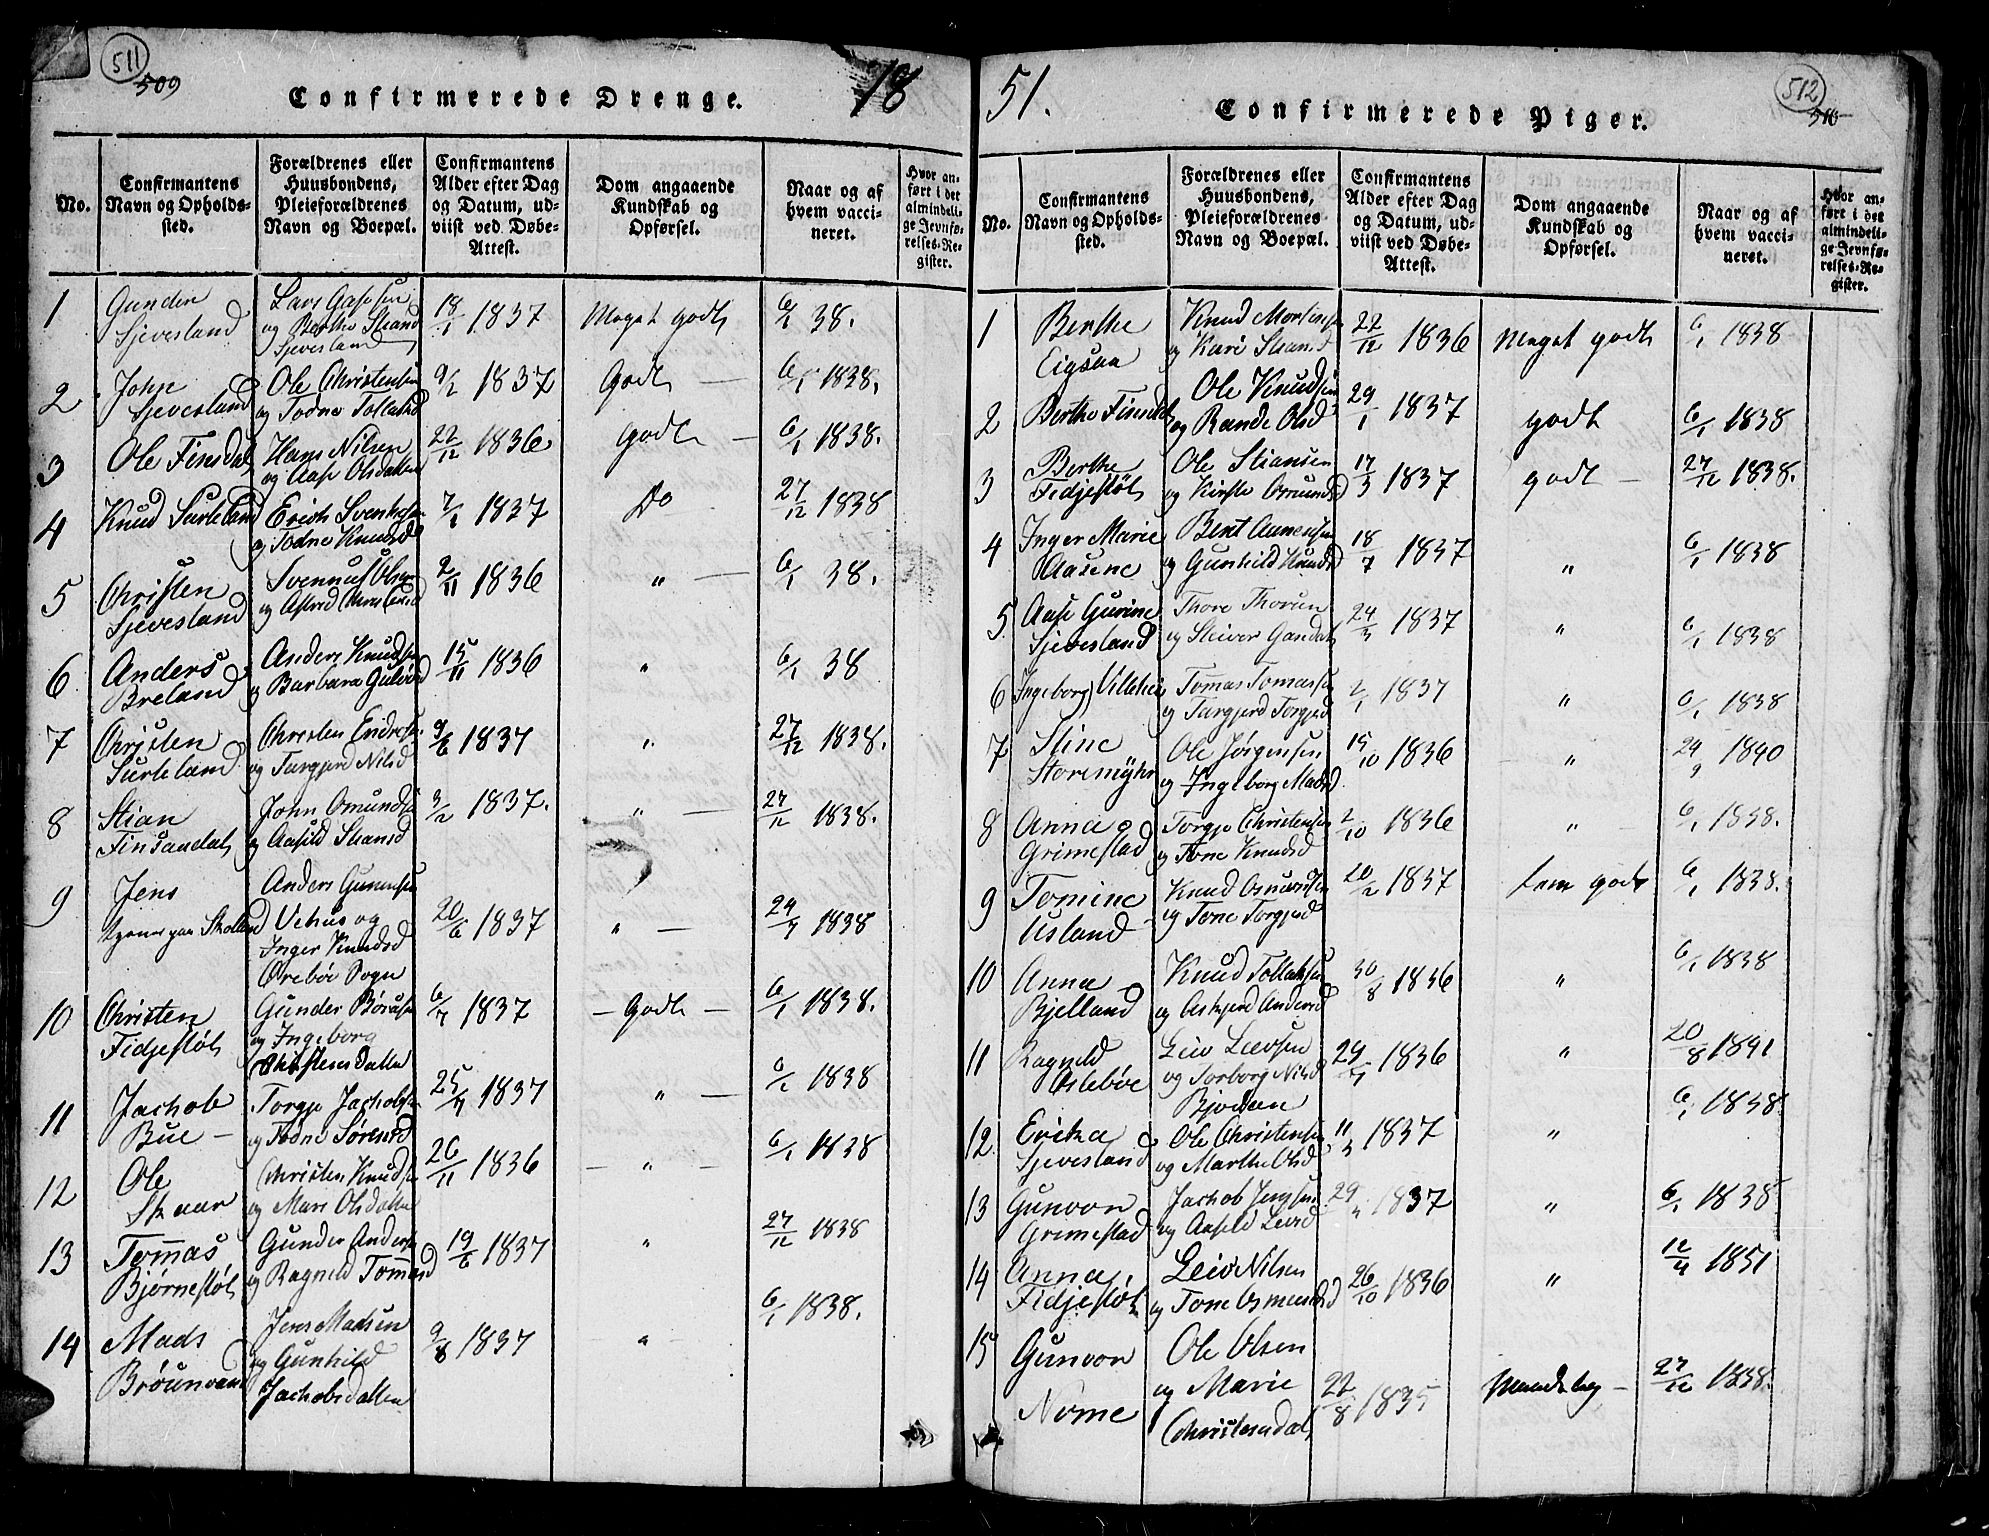 511
509
Confirmerede Drenge.
18
No.
Confirmantens
Navn og Opholds-
sted.
Forældrenes eller
Huusbondens,
Pleieforældrenes
Navn og Boepæl.
Confirmantens
Alder efter Dag
og Datum, ud-
viist ved Døbe-
Attest.
Dom angaaende
Kundskab og
Opførsel.
Naar og af
hvem vacci-
neret.
Hvor an-
ført i det
almindeli-
ge Jevnfø-
relses-Re-
gister.
1 Gunder Lars Aasesen 18/1 1837 Meget godt 6/1 38.
Sjevesland og Berthe Stiansd
Sjevesland
2 John Ole Christensen 9/2 1837 Godt — 6/1 1838.
Sjevesland og Todne Tollaksd
3 Ole Finsdal Hans Nilsen 22/12 1836. Godt — 6/1 1838.
og Aase Olsdatter
4 Knud Surteland Erich Svenkesen 7/1 1837 Do 27/12 1838
og Todne Knudsd
5 Christen Svennus Olsen 2/11 1836 " — 6/1 38.
Sjevesland og Astred
6 Anders Anders Knudsen 15/11 1836 " 6/1 38
Breland og Barbara
7 Christen Christen Endresen 9/6 1837 " 27/12 1838.
Surteland og Targjerd Nilsd
8 Stian John Omundsen 3/2 1837. " — 27/12 1838.
Finsaadal og Aasild Stiansd
9 Jens Anders Gunensen 20/6 1837 " — 24/7 1838
Skolland Vehus og
Inger Knudsd
Ørebøe Sogn
10 Christen Gunder 6/7 1837 — Godt — 6/1 1838.
Fidjestøl og Ingeborg
Christensdatter
11 Jachob Torgje Jachobsen 25/7 1837 " — 6/1 1838
Bue — og Todne Sørensd
12 Ole Christen Knudsen 26/11 1836 — " — 6/1 1838
Skaar og Mari Olsdatter
13 Tomas Gunder Andersen 19/6 1837 " 27/12 1838
Bjørnestøl og Ragnild Tomasd
14 Mads Jens Madsen 9/8 1837 — " — 6/1 1838.
Brøunvand og Gunhild
Jachobsdatter
51.
Confirmerede Piger.
512
510
No.
Confirmantens
Navn og Opholds-
sted.
Forældrenes eller
Huusbondens,
Pleieforældrenes
Navn og Boepæl.
Confirmantens
Alder efter Dag
og Datum, ud-
viist ved Døbe-
Attest.
Dom angaaende
Kundskab og
Opførsel.
Naar og af
hvem vacci-
neret.
Hvor an-
ført i det
almindeli-
ge Jevnfø-
relses-Re-
gister.
1 Berthe Knud Mortensen 22/12 1836 Meget godt 6/1 1838
Eigsaa og Kari Stiansd
2 Berthe Finsdal Ole Knudsen 29/1 1837 godt 6/1 1838
og Rande Olsd
3 Berthe Ole Stiansen 17/3 1837 godt — 27/12 1838.
Fidjestøl og Kirstie Omundsd
4 Inger Marie Bent Aanensen 18/7 1837 " 6/1 1838
Aasene og Gunhild Knudsd
5. Aase Gurine Thore 24/3 1837 " 6/1 1838
Sjevesland og Steiver Gandal
6 Ingeborg Tomas Tomassen 2/1 1837 " 6/1 1838
og Targjerd Torgjesd
7 Stine Ole Jørgensen 15/10 1836 " 24/9 1840
Storemyhr og Ingeborg Madsd
8 Anna Torgje Christensen 2/10 1836 " 6/1 1838.
Grimestad og Tone Knudsd
9 Tomine Knud Osmundsen 20/2 1837 godt 6/1 1838.
Usland og Tone Torgjesd
10 Anna — Knud Tollaksen 30/8 1836 " 6/1 1838
Bjelland og Askjerd Andersd
11 Ragnild Leiv Leevsen 29/7 1836 " 20/8 1841
Oslebøe og Torborg Nilsd
12 Ericka Ole Christensen 11/3 1837 " 6/1 1838
Sjevesland og Marthe Olsd
13 Gunvor Jachob Jensen 29 1837 " 6/1 1838
Grimestad og Aasild Leivsd
14 Anna Leiv Nilsen 26/10 1836 " 12/4 1851
Fidjestøl og Tone Osmundsd
15 Gunvor Ole Olsen
Nome og Marie 22/8 1835 — 27/12 1838.
Christensdat